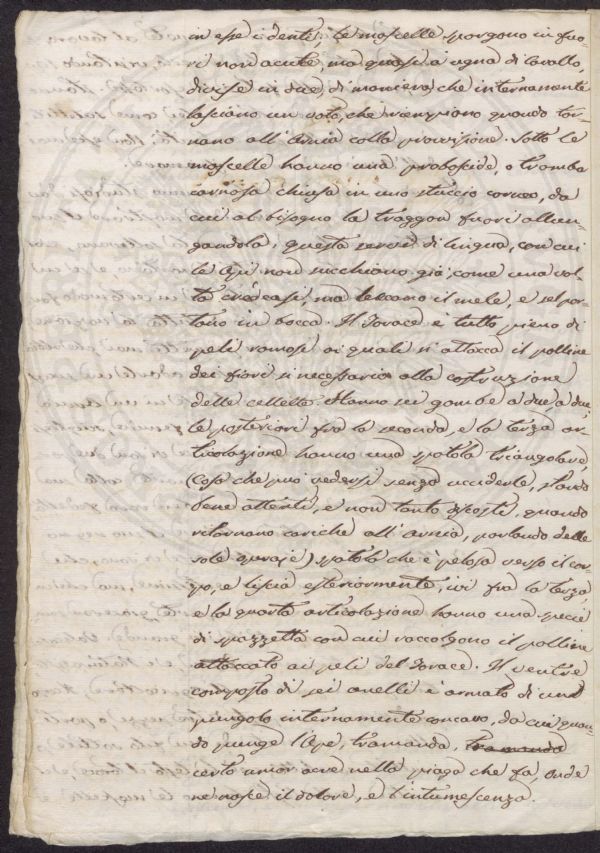 in esse i denti. Le mascelle sporgono in fuo-
ri non acute, ma quasi a ugna di cavallo,
divise in due, di maniera che internamente
lasciano un voto, che riempiono quando tor-
nano all'Arnia colla provisione. Sotto le
mascelle hanno una proboscide, o tromba
carnosa chiusa in uno stuccio corneo, da
cui al bisogno la traggon fuori allun-
gandola, questa serve di lingua, con cui
le Api non succhiano già, come una vol-
ta credeasi, ma leccano il mele, e sel por-
tano in bocca. Il Torace è tutto pieno di
peli ramosi ai quali si attacca il polline
dei fiori sì necessario alla costruzione
delle cellette. Hanno sei gambe a due, a due,
le posteriori fra la seconda, e la terza ar-
ticolazione hanno una spatola triangolare,
(cosa che può vedersi senza ucciderle, stando
bene attenti, e non tanto discosti, quando
ritornano cariche all'arnia, parlando delle
sole operaje) spatola che è pelosa verso il cor-
po, e liscia esteriormente, ivi fra la terza,
e la quarta articolazione hanno una specie
di spazzetta con cui raccolgono il polline
attaccato ai peli del Torace. Il ventre
composto di sei anelli è armato di un
pungolo internamente concavo, da cui quan-
do punge l'Ape, tramanda, tramanda
certo umor acre nella piaga che fa, onde
ne nasce il dolore, e l'intumescenza.